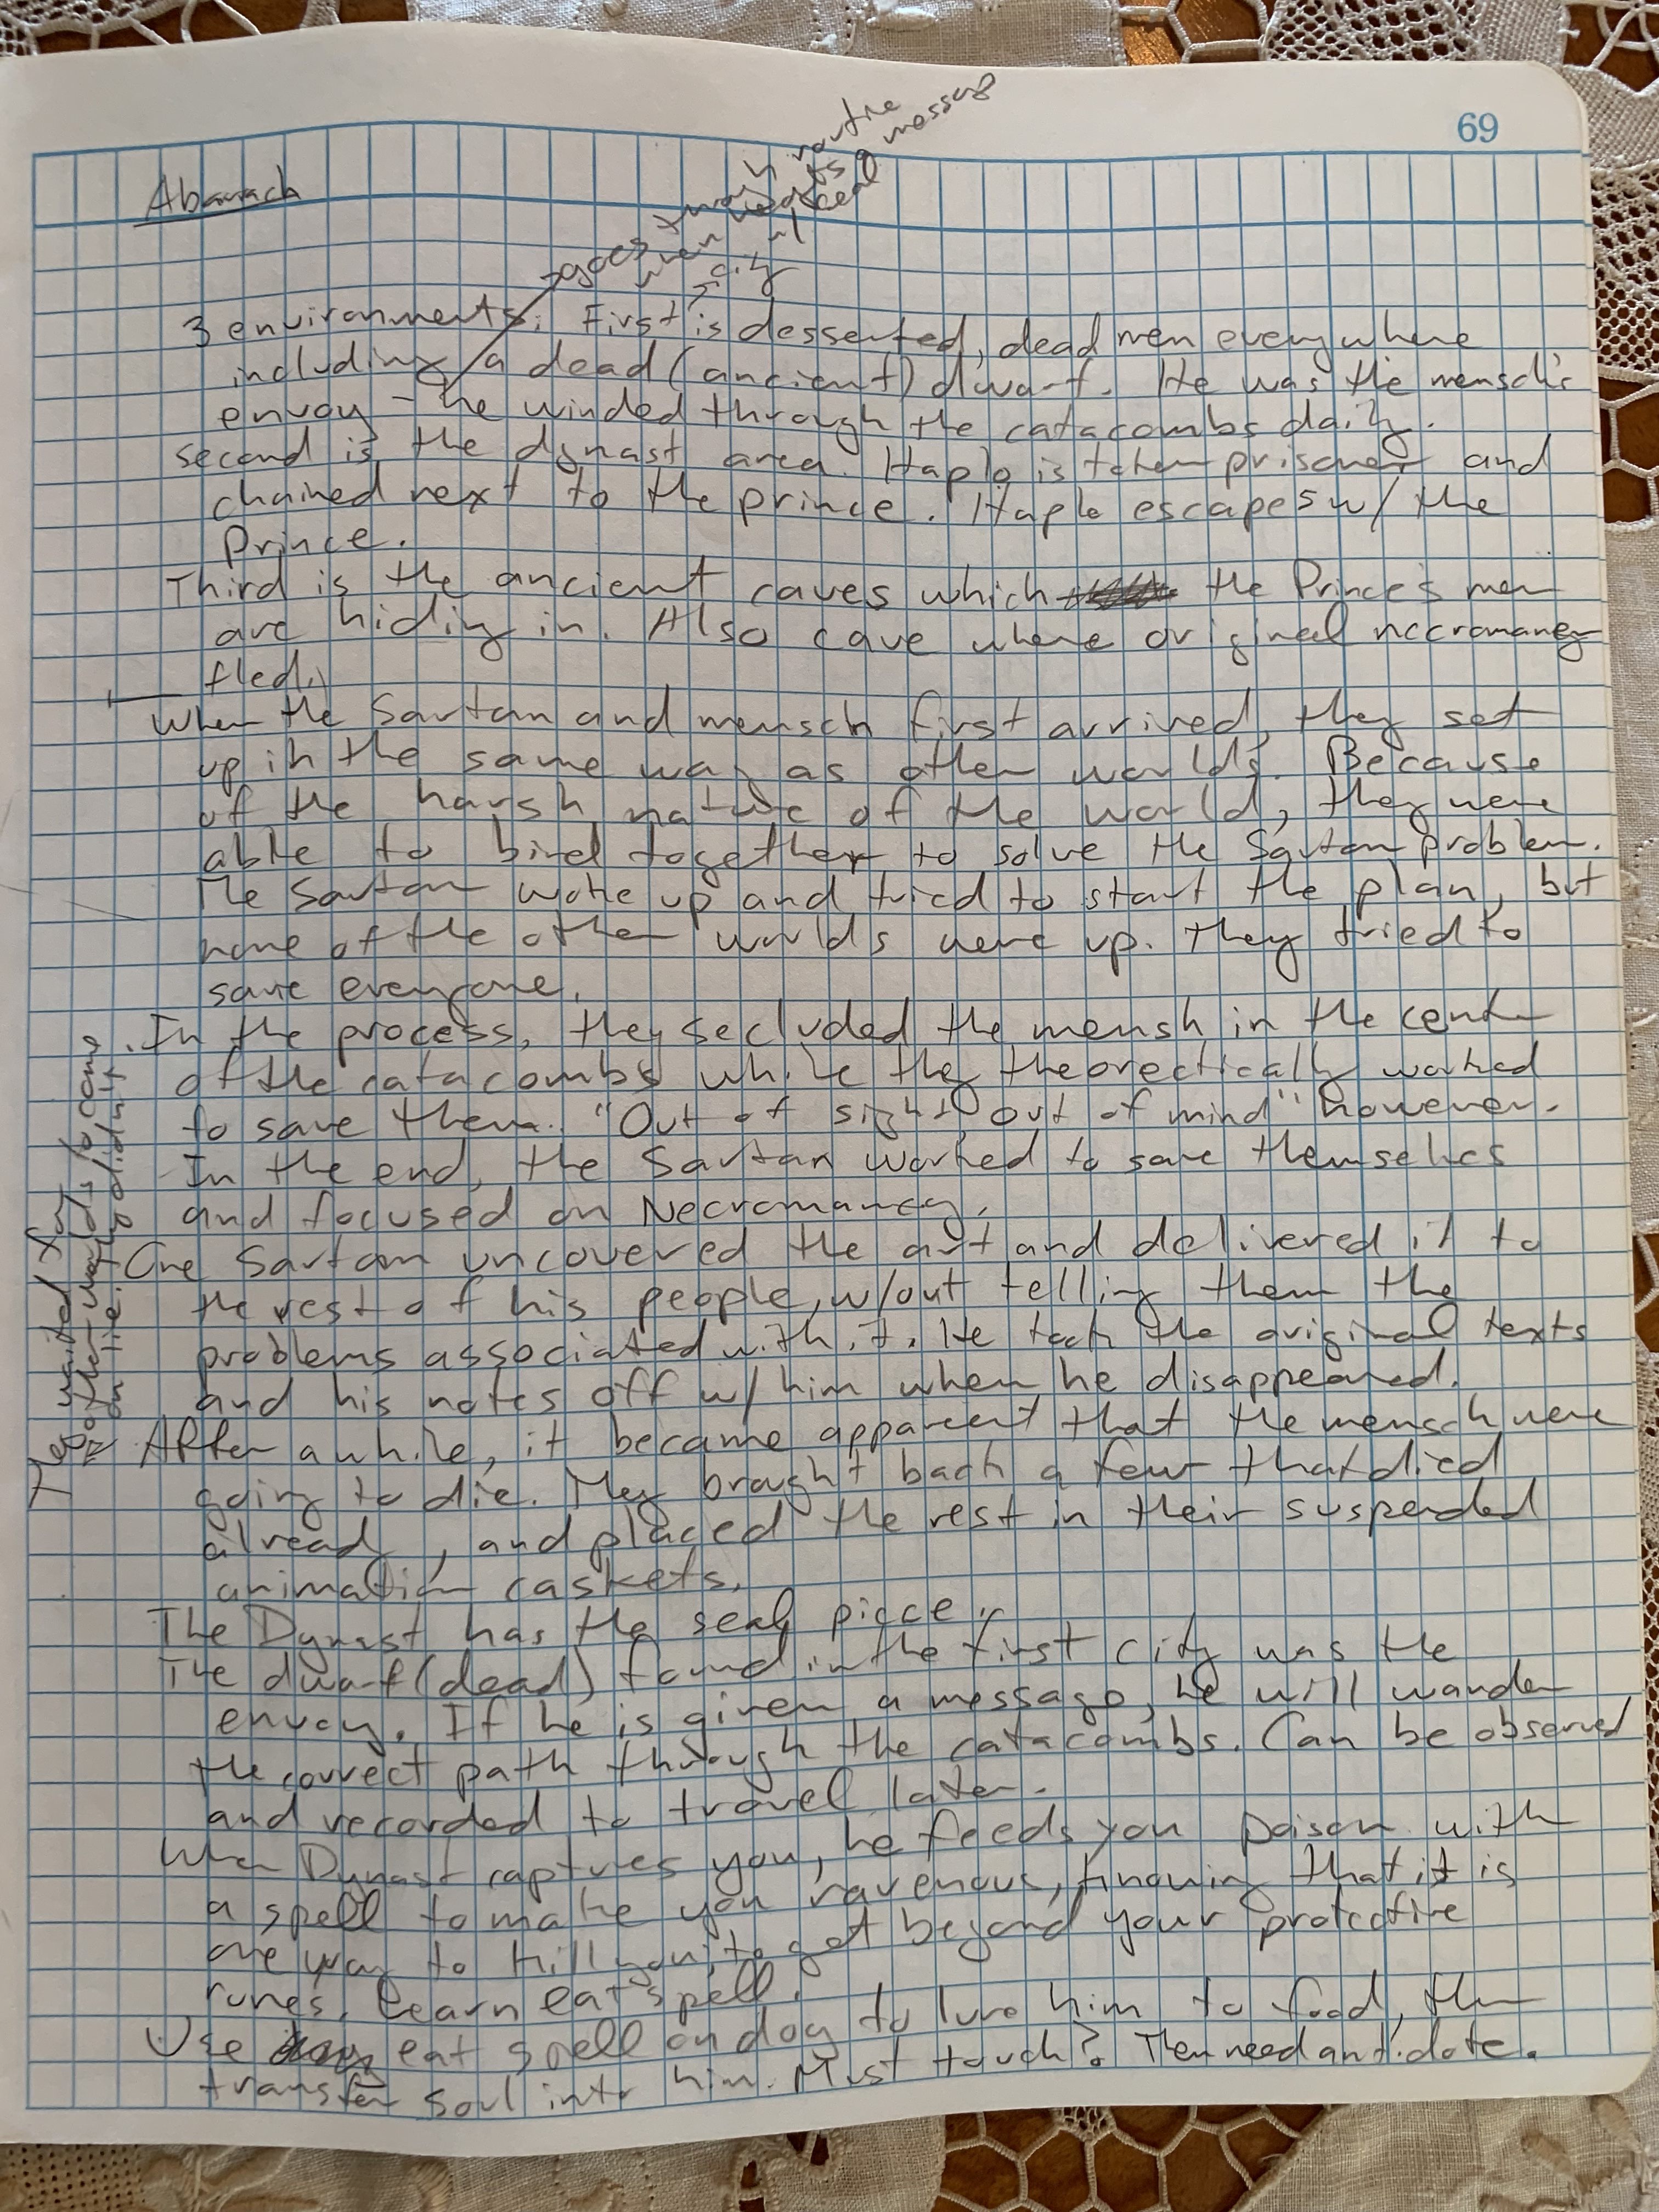 69
Abarrach
goes through routine
when needs a message
w/ seal
city
3 environments: First is desserted, dead men everywhere
including a dead (ancient) dwarf. He was the mensch's
envoy - he winded through the catacombs daily.
second is the dynast area. Haplo is taken prisoner and
chained next to the prince. Haplo escapes w/ the
Prince.
Third is the ancient caves which the Prince's men
are hiding in. Also cave where original necromancy
fled.
When the Sartan and mensch first arrived, they set
up in the same way as other worlds. Because
of the harsh nature of the world, they were
able to bind together to solve the Sartan problem.
The Sartan woke up and tried to start the plan, but
none of the other worlds were up. They tried to
save everyone.
In the process, they secluded the mensh in the center
of the catacombs while they theorectically worked
to save them. "Out of sight, out of mind" however.
In the end, the Sartan worked to save themselves
and focused on Necromancy.
One Sartan uncovered the art and delivered it to
the rest of his people, w/out telling them the
problems associated with it. He took the original texts
and his notes off w/ him when he disappeared.
After awhile, it became apparent that the mensch were
going to die. They brought back a few that died
already, and placed the rest in their suspended
animation caskets.
The Dynast has the seal piece.
The dwarf (dead) found in the first city was the
envoy. If he is given a message, he will wander
the correct path through the catacombs. Can be observed
and recorded to travel later.
When Dynast captures you, he feeds you poison with
a spell to make you ravenous, knowing that it is
one way to kill you, to get beyond your protective
runes. Learn eat spell.
Use eat spell on dog to lure him to food, then
transfer soul into him. Must touch? Then need antidote.
They waited for
other worlds to come
on line. They didn't.